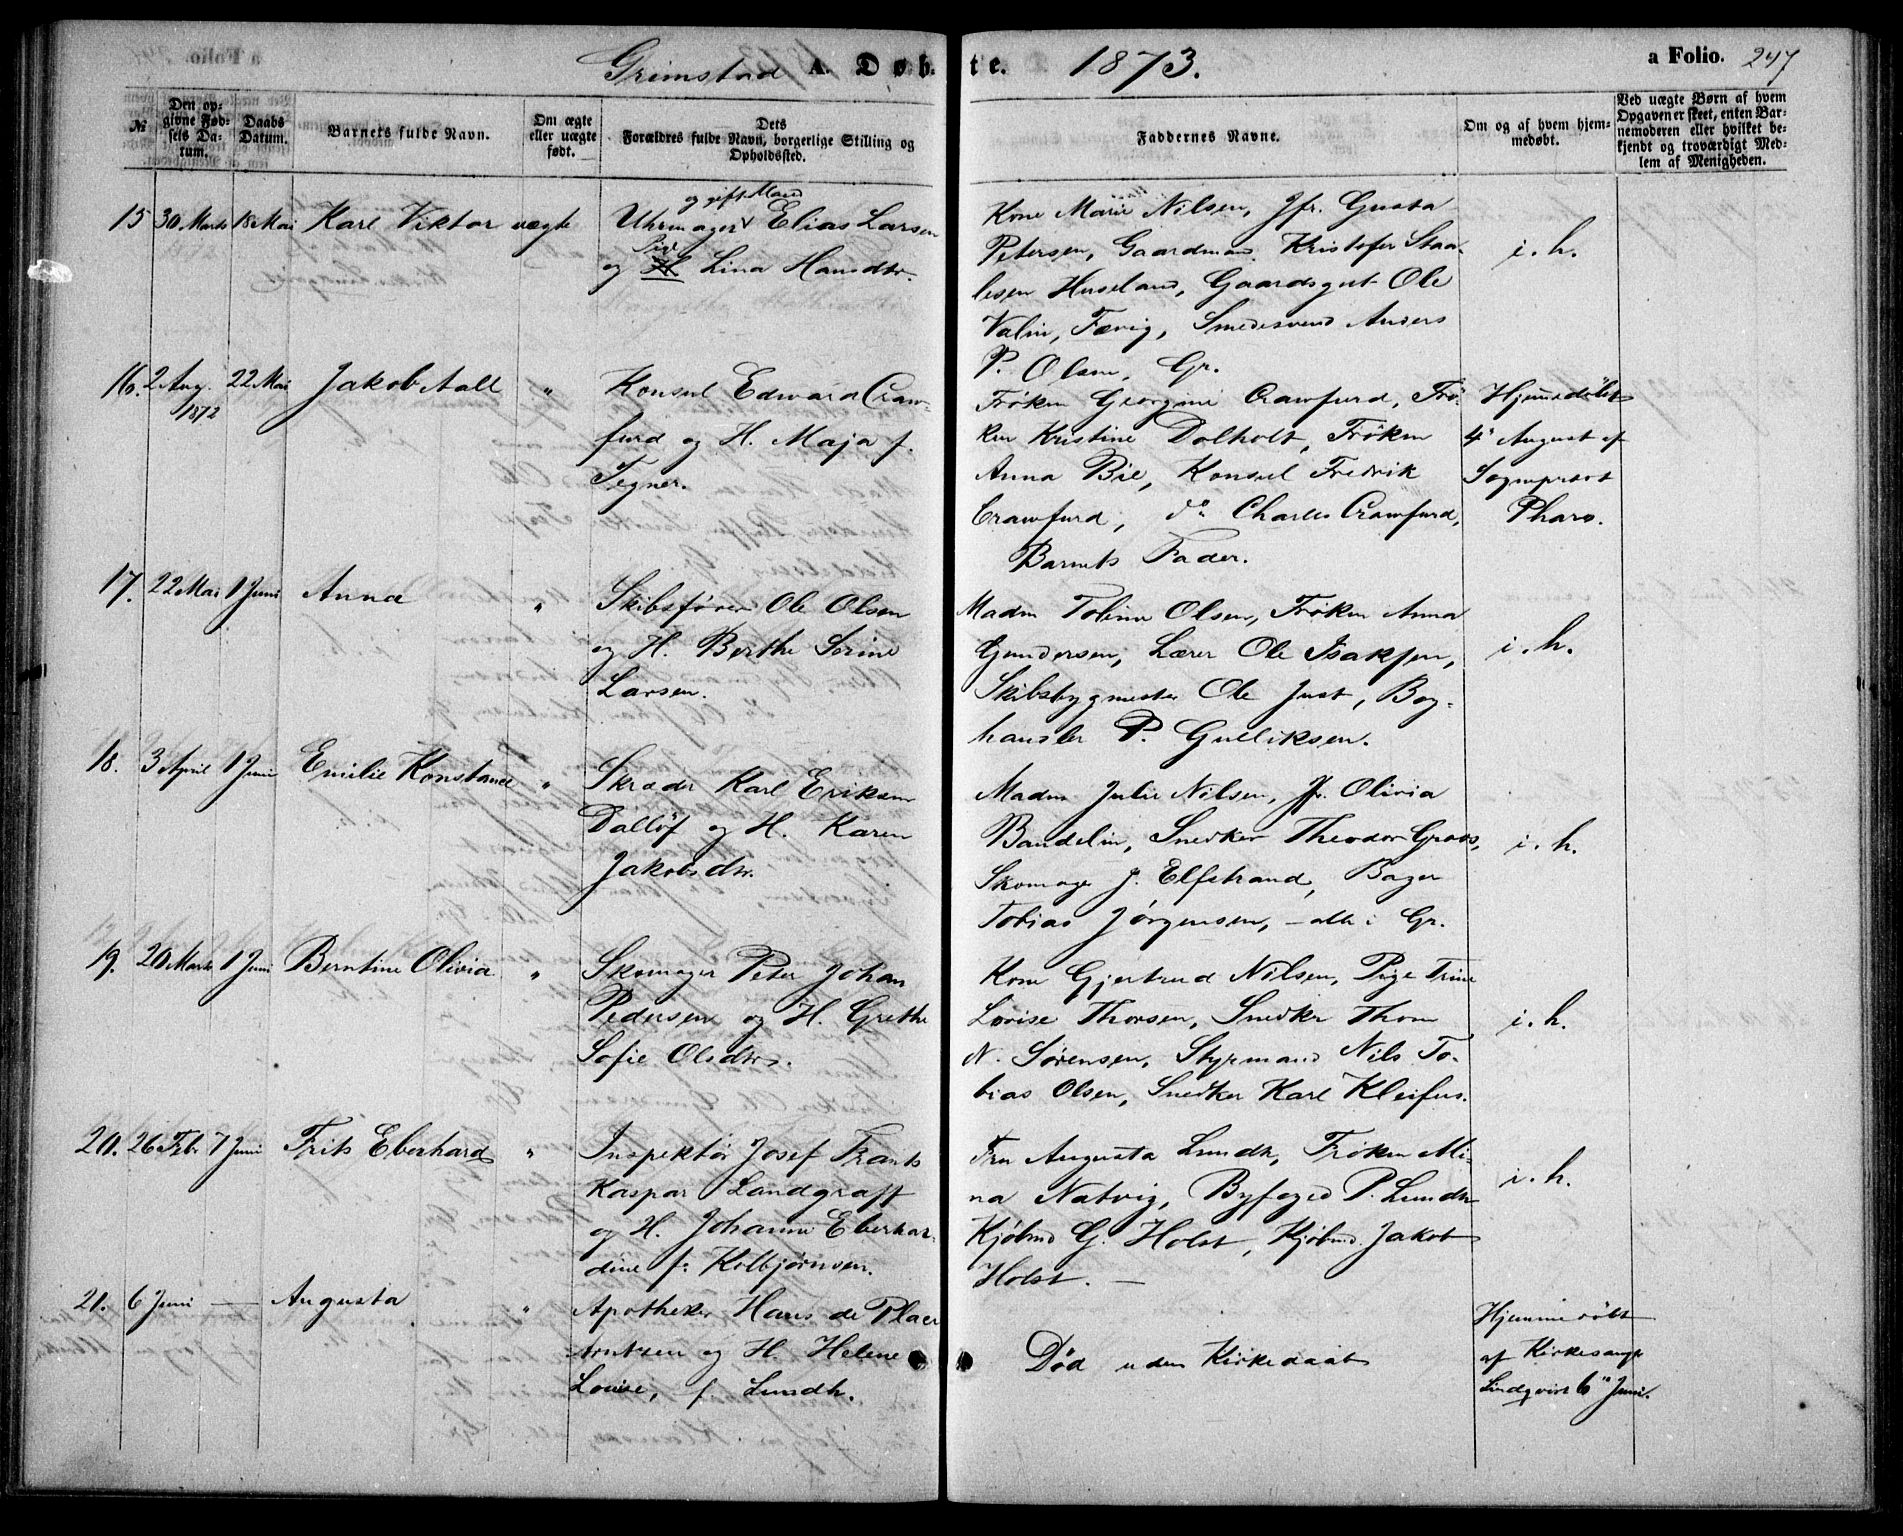 Grimstad A. Døb- te. 1873. a Folio. 247
№
Den op-
givne Fød-
sels Da-
tum.
Daabs
Datum.
Barnets fulde Navn.
Om ægte
eller uægte
født.
Dets
Forældres fulde Navn, borgerlige Stilling og
Opholdssted.
Faddernes Navne.
Om og af hvem hjem-
medøbt.
Ved uægte Børn af hvem
Opgaven er skeet, enten Bar-
nemoderen eller hvilket be-
kjendt og troværdigt Med-
lem af Menigheden.
15 30 Marts 18 Mai Karl Viktor uægte
og gift Mand
Uhrmager Elias Larsen
og Pige Lina Hansdtr.
Kone Marie Nilsen, Jfr. Gusta
Petersen, Gaardmand Kristofer Staa-
lesen Huseland, Gaardsgut Ole
Valin, Færvig, Smedesvend Anders
P. Olsen, Gr.
i. h.
16. 2 Aug. 1872 22 Mai Jakob Aall "
Konsul Edward Craw-
furd og H. Maja f.
Tegner.
Frøken Georgine Crawfurd, Frø-
ken Kristine Dolholt, Frøken
Anna Bie, Konsul Fredrik
Crawfurd, do Charles Crawfurd,
Barnets Fader.
Hjemmedøbt
4 August af
Sogneprest
Pharo.
17. 22 Mai 1 Juni Anna "
Skibsfører Ole Olsen
og H. Berthe Sorine
Larsen.
Madm Tobine Olsen, Frøken Anna
Gundersen, Lærer Ole Isaksen,
Skibsbygmester Ole Just, Bog-
handler P. Gulliksen.
i. h.
18. 3 April 1 Juni Emilie Konstance "
Skræder Karl Eriksen
Dallöf og H. Karen
Jakobsdtr.
Madm Julie Nilsen, Jfr. Olivia
Bandelin, Snedker Theodor Groos,
Skomager J. Elfstrand, Bager
Tobias Jørgensen, – alle i Gr.
i. h.
19. 20 Marts 1 Juni Berntine Olivia "
Skomager Peter Johan
Pedersen og H. Grethe
Sofie Olsdtr.
Kone Gjertrud Nilsen, Pige Trine
Lovise Thorsen, Snedker Thom
N. Sørensen, Styrmand Nils To-
bias Olsen, Snedker Karl Kleifus.
i. h.
20. 26 Febr 7 Juni Frits Eberhard "
Inspektør Josef Frants
Kaspar Landgraff
og H. Johanne Eberhar-
dine f. Kolbjørnsen.
Fru Augusta Lundh, Frøken Mi-
na Natvig, Byfoged P. Lundh
Kjøbmd G. Holst, Kjøbmd. Jakob
Holst. –
i. h.
21. 6 Juni — Augusta "
Apotheker Hans de Placr
Arntzen og H. Helene
Louise, f. Lundh.
Død uden Kirkedaab
Hjemmedøbt
af Kirkesanger
Lindqvist 6 Juni.